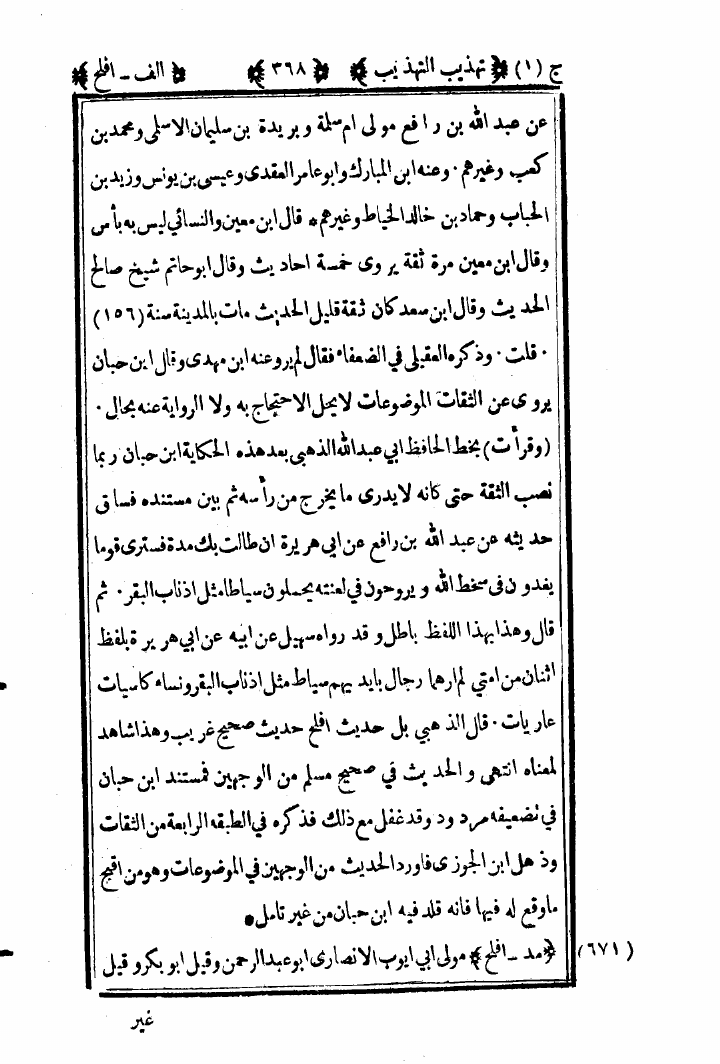 ج (١) ﴿ تهذيب التهذيب ﴾ ﴿ ٣٦٨ ﴾ ﴿ الف ـ افلح ﴾
عن عبد الله بن رافع مولى ام سلمة وبريدة بن سليمان الاسلمى ومحمد بن
كعب وغيرهم ٠ وعنه ابن المبارك وابو عامر العقدى وعيسى بن يونس وزيد بن
الحباب وحماد بن خالد الخياط وغيرهم * قال ابن معين والنسائي ليس به بأس
وقال ابن معين مرة ثقة يروى خمسة احاديث وقال ابو حاتم شيخ صالح
الحديث وقال ابن سعد كان ثقة قليل الحديث مات بالمدينة سنة (١٥٦)
٠ قلت ٠ وذكره العقيلى في الضعفاء فقال لم يرو عنه ابن مهدى وقال ابن حبان
يروى عن الثقات الموضوعات لايحل الاحتجاج به ولا الرواية عنه بحال ٠
(وقرأت) بخط الحافظ ابي عبد الله الذهبى بعد هذه الحكاية ابن حبان ربما
نصب الثقة حتى كانه لايدرى مايخرج من رأسه ثم بين مستنده فساق
حديثه عن عبد الله بن رافع عن ابي هريرة ان طالت بك مدة فسترى قوما
يغدون فى سخط الله ويروحون في لعنته يحملون سياطا مثل اذناب البقر ٠ ثم
قال وهذا بهذا اللفظ باطل وقد رواه سهيل عن ابيه عن ابي هريرة بلفظ
اثنان من امتي لم ارهما رجال بايديهم سياط مثل اذناب البقر ونساء كاسيات
عاريات ٠ قال الذهبي بل حديث افلح حديث صحيح غريب وهذا شاهد
لمعناه انتهى والحديث في صحيح مسلم من الوجهين فمستند ابن حبان
في تضعيفه مردود وقد غفل مع ذلك فذكره في الطبقه الرابعة من الثقات
وذهل ابن الجوزى فاورد الحديث من الوجهين في الموضوعات وهو من اقبح
ماوقع له فيها فانه قلد فيه ابن حبان من غير تامل *
(٦٧١) ﴿ مد ـ افلح ﴾ مولى ابي ايوب الانصارى ابو عبد الرحمن وقيل ابو بكر وقيل
غير